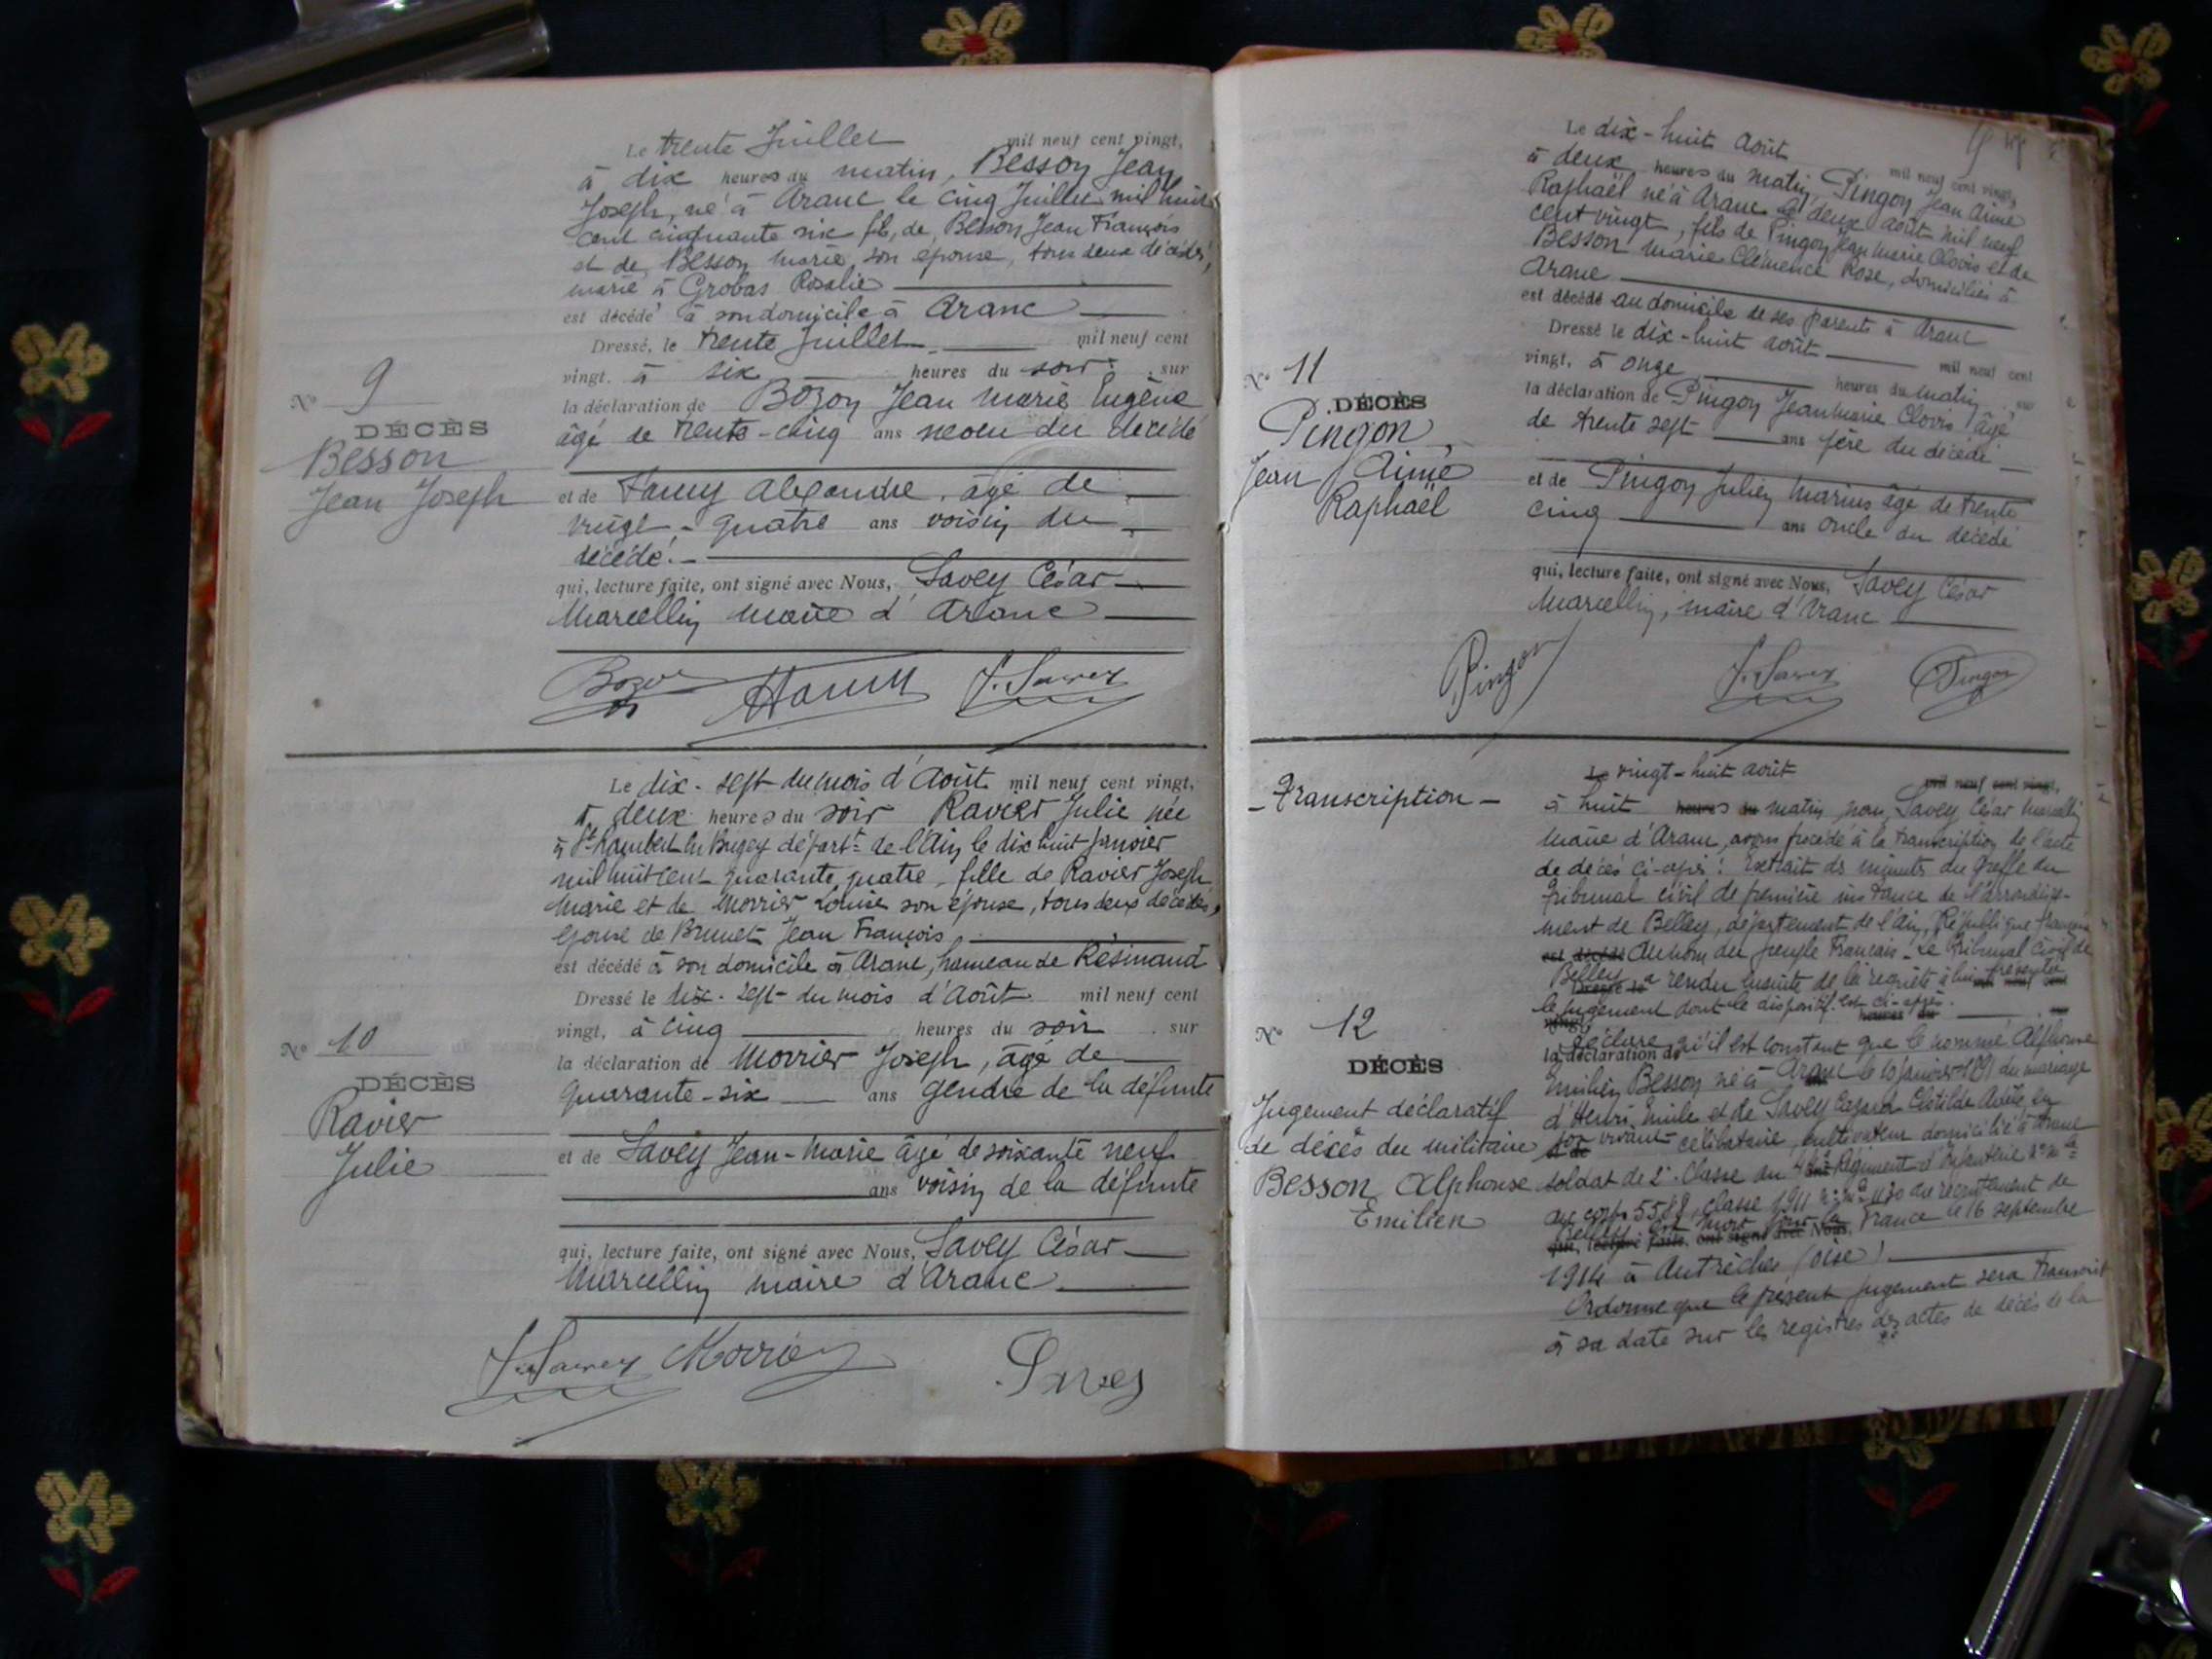 Le trente Juillet mil neuf cent vingt,
à dix heures du matin, Besson Jean
Joseph, né à Aranc le cinq Juillet mil huit
cent cinquante six fils de Besson Jean François
et de Besson Marie, son épouse, tous deux décédés,
marié à Grobas Rosalie
est décédé à son domicile à Aranc
Dressé, le trente Juillet mil neuf cent
vingt. à six heures du soir. sur
la déclaration de Bozon Jean Marie Eugène
âgé de trente-cinq ans neveu du décédé
N° 9
DÉCÈS
Besson
Jean Joseph
et de Alexandre, âgé de
vingt-quatre ans voisin du
décédé.
qui, lecture faite, ont signé avec Nous, Savey César
Marcellin maire d'Aranc
Bozon J. Savey
Le dix-sept du mois d'Août mil neuf cent vingt,
à deux heures du soir Ravier Julie née
à St Rambert en Bugey départt de l'Ain le dix huit janvier
mil huit cent quarante quatre, fille de Ravier Joseph
Marie et de Morrier Louise son épouse, tous deux décédés,
épouse de Brunet Jean François
est décédé à son domicile à Aranc, hameau de Résinand
Dressé le dix-sept du mois d'Août mil neuf cent
vingt, à cinq heures du soir sur
la déclaration de Morrier Joseph, âgé de
quarante-six ans gendre de la défunte
N° 10
DÉCÈS
Ravier
Julie
et de Savey Jean-Marie âgé de soixante neuf
ans voisin de la défunte
qui, lecture faite, ont signé avec Nous, Savey César
Marcellin maire d'Aranc
J. Savey Morrier Savey
Le dix-huit Août mil neuf cent vingt,
à deux heures du matin, Pingon Jean Aimé
Raphaël né à Aranc le deux août mil neuf
cent vingt, fils de Pingon Jean Marie Clovis et de
Besson Marie Clémence Rose, domiciliés à
Aranc
est décédé au domicile de ses parents à Aranc
Dressé le dix-huit août mil neuf cent
vingt, à onze heures du matin sur
la déclaration de Pingon Jean Marie Clovis âgé
de trente sept ans père du décédé
N° 11
DÉCÈS
Pingon
Jean Aimé
Raphaël
et de Pingon Julien Marius âgé de trente
cinq ans oncle du décédé
qui, lecture faite, ont signé avec Nous, Savey César
Marcellin, maire d'Aranc
Pingon J. Savey Pingon
Transcription
Le vingt-huit août mil neuf cent vingt,
à huit heures du matin nous Savey César Marcellin
maire d'Aranc, avons procédé à la transcription de l'acte
de décès ci-après : Extrait des minutes du Greffe du
Tribunal civil de première instance de l'arrondisse-
ment de Belley, département de l'Ain, République française
est décédé Au nom du peuple Français - Le Tribunal civil de
Belley a rendu ensuite de la requête à lui présentée
le jugement dont le dispositif est ci-après.
Déclare qu'il est constant que le nommé Alphonse
la déclaration de
Emilien Besson né à Aranc le 10 janvier 1891 du mariage
d'Henri Emile et de Savey Clotilde en
son vivant célibataire, cultivateur domicilié à Aranc
soldat de 2e classe au Régiment d'Infanterie
au corps classe 1911 au recrutement de
Belley est mort pour la France le 16 septembre
qui, lecture faite, ont signé avec Nous,
1914 à Autrèches (Oise)
Ordonne que le présent jugement sera transcrit
à sa date sur les registres des actes de décès de la
N° 12
DÉCÈS
Jugement déclaratif
de décès du militaire
Besson Alphonse
Emilien